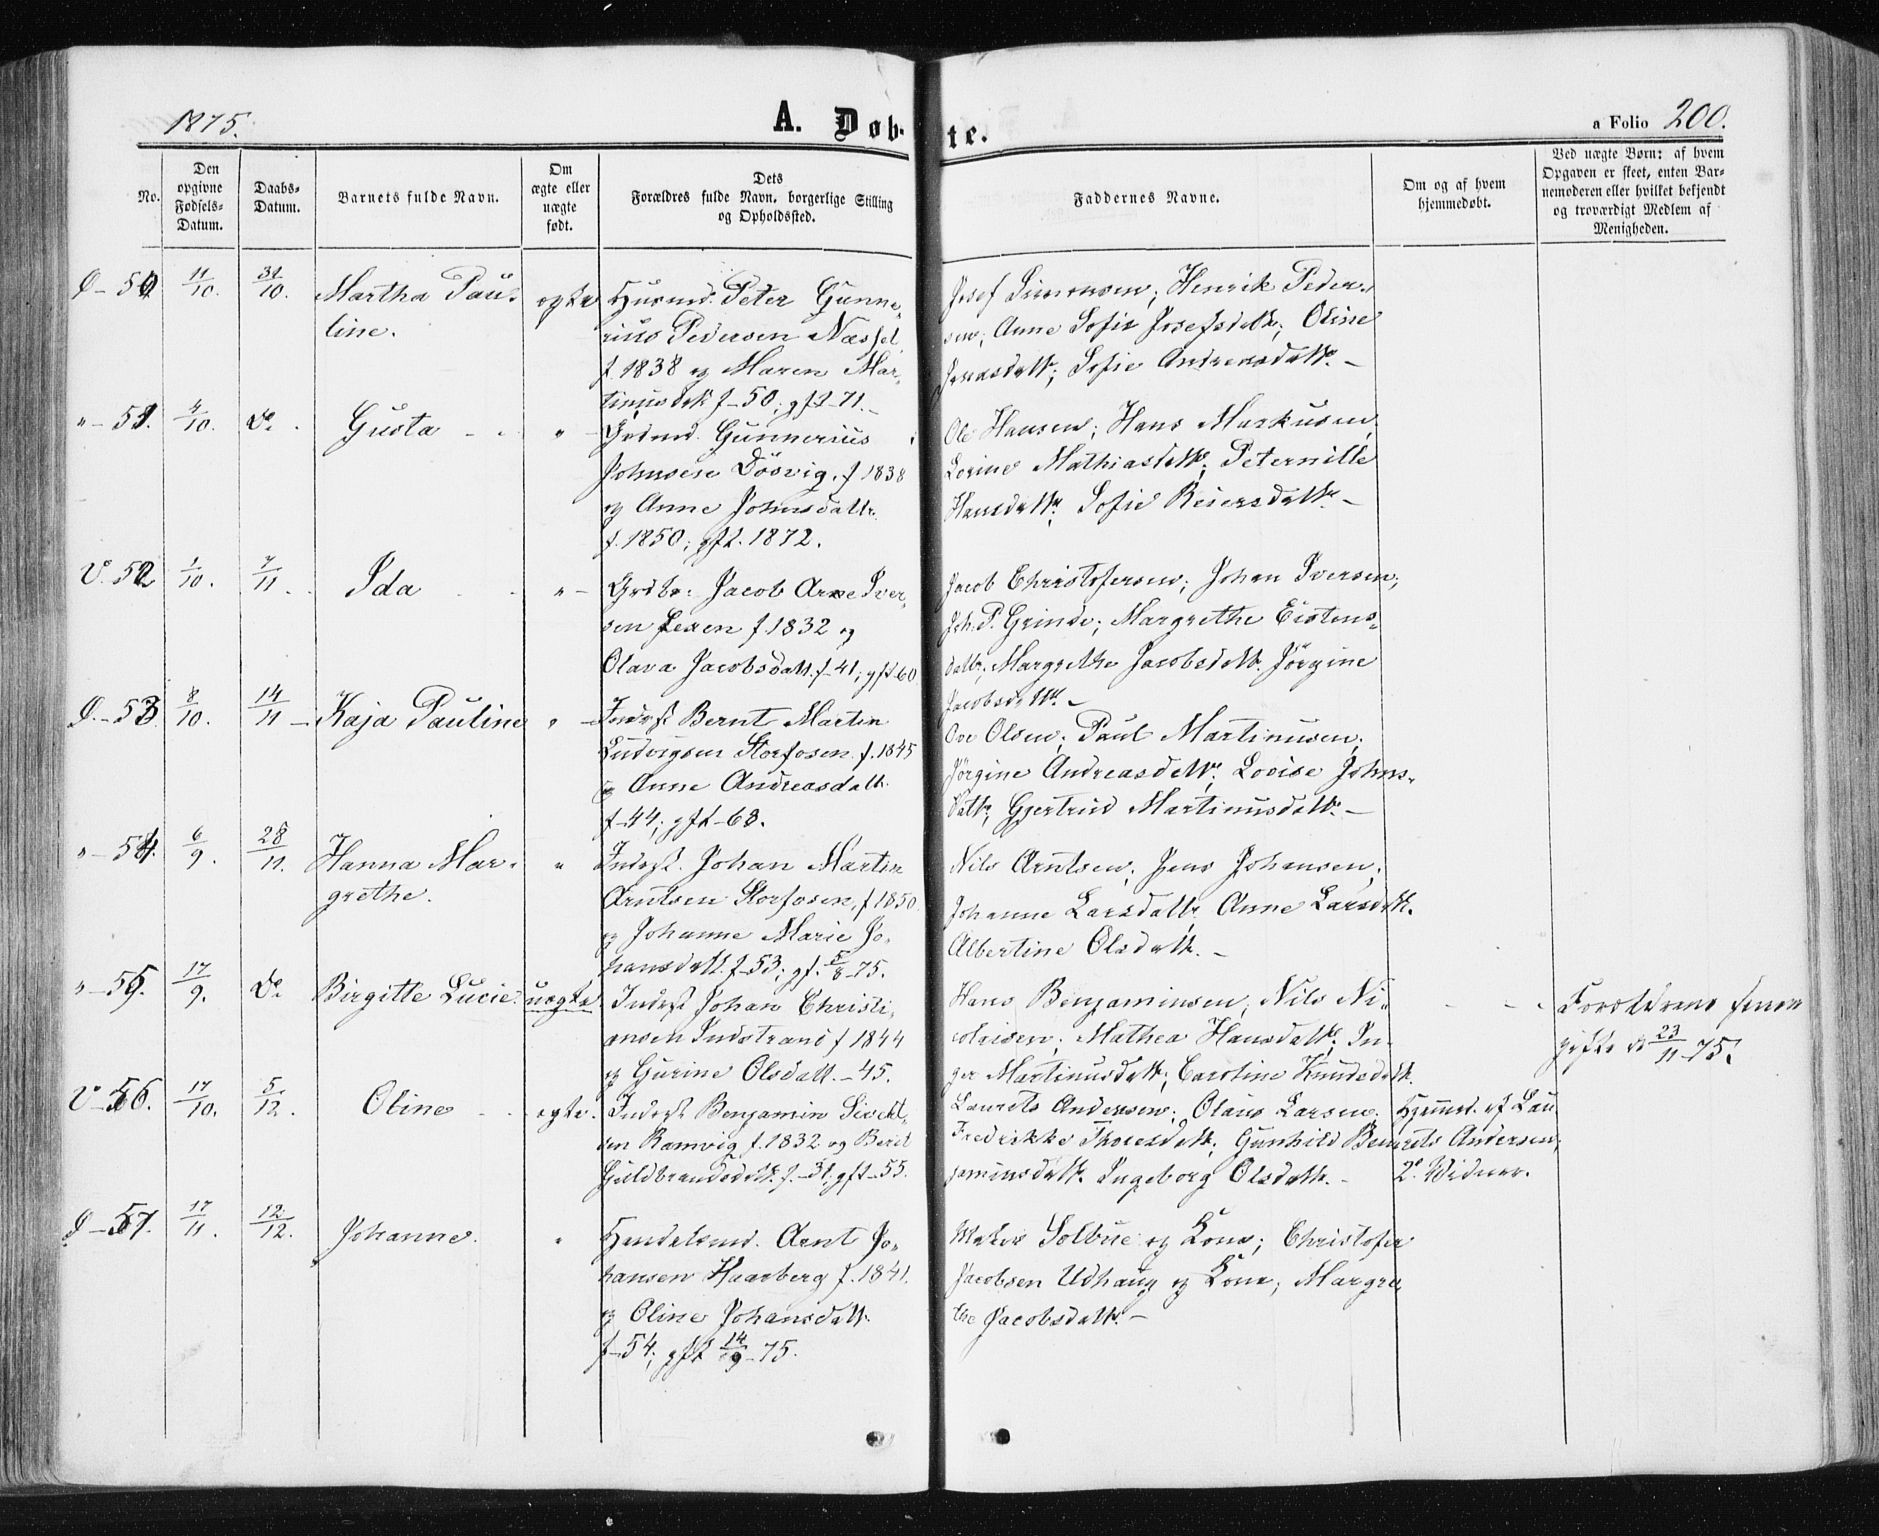 1875.
A. Døbte.
a Folio 200.
No.
Den opgivne Fødsels-Datum.
Daabs-Datum.
Barnets fulde Navn.
Om ægte eller uægte født.
Dets Forældres fulde Navn, borgerlige Stilling og Opholdssted.
Faddernes Navne.
Om og af hvem hjemmedøbt.
Ved uægte Børn: af hvem Opgaven er skeet, enten Barnemoderen eller hvilket bekjendt og troværdigt Medlem af Menigheden.
50. 11/10. 31/10. Martha Pau-
line.
egte
Husmd. Peter Gunne-
rius Pedersen Næsset
f. 1838 og Maren Mar-
tinusdtr f-50; gft-71.-
Josef Simonsen; Henrik Peder-
sen; Anne Sofie Josefsdatt.; Oline
Jonasdatt; Sofie Andreasdatt. -
" - 51. 4/10. Do. Gusta "
Grdmd. Gunnerius
Johnsen Døsvig. f 1838
og Anne Johnsdattr.
f. 1850; gft. 1872.
Ole Hansen; Hans Markusen;
Lorine Mathiasdatt.; Peternille
Hansdatt.; Sofie Reiersdatt. -
V. 52 1/10. 7/11. Ida " -
Grdbr. Jacob Arne Iver-
sen Lexen f 1832 og
Olava Jacobsdatt. f-41; gft-60
Jacob Christofersen; Johan Iversen;
Joh. P. Grinde; Margrethe Eistens-
dattr; Margrethe Jacobsdatt. Jörgine
Jacobsdatt. -
53. 8/10. 14/11 - Kaja Pauline " -
Inderst Bernt Martin
Ludvigsen Storfosen f. 1845
og Anne Andreasdatt.
f-44; gft-68.
Ove Olsen; Paul Martinusen;
Jörgine Andreasdatt. Lovise Johns-
datt; Gjertrud Martinusdatt. -
" - 54. 6/9. 28/11. Hanna Mar-
grethe. "
Inderst. Johan Martin
Arntsen Storfosen, f 1850
og Johanne Marie Jo-
hansdatt. f-53; gf. 5/8-75.
Nils Arntsen; Jens Johansen;
Johanne Larsdattr Anne Larsdatt.
Albertine Olsdatt. -
" - 55. 17/9. Do. Birgitte Lucie. uegte.
Inderst Johan Christi-
ansen Indstrand f 1844
og Gurine Olsdatt. -45.
Hans Benjaminsen; Nils Ni-
colaisen; Mathea Hansdatt.; In-
ger Martinusdatt; Caroline Knudsdatt.
Forældrene senere
gifte d 23/11-75.
V - 56. 17/10. 5/12. Oline egte.
Inderst Benjamin Sivert-
sen Ramvig f. 1832 og Berit
Guldbrandsdatt. f. -31; gft-55.
Laurits Andersen; Olaus Larsen;
Fredrikke Thoresdatt; Gunhild Ben-
jaminsdatt. Ingeborg Olsdatt. -
Hjemmed. af Lau-
rits Andersen;
2 Vidner.
57. 17/11. 12/12. Johanne. "
Handelsmd. Arnt Jo-
hansen Haarberg f. 1841.
og Oline Johansdatt.
f-54; gft 14/9-75.
Solbue og Kone; Christofer
Jacobsen Udhaug og Kone; Margre-
the Jacobsdatt. -